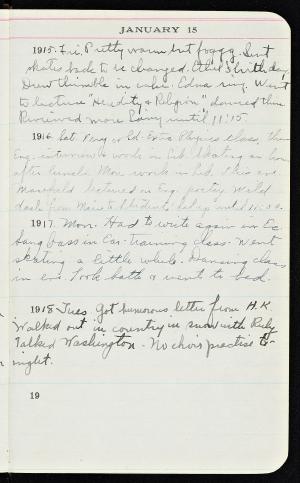 JANUARY 15
1915. Fri. Pretty warm but foggy. Sent
skates back to be changed. Ethel's birthday
Drew thimble in cake. Edna ring. Went
to lecture "Heredity & Religion", danced then
Reviewed more until 11:15.
1916. Sat. Eng. or Ed. Extra Physics class, then
Eng. interview & work in Lib. Skating an hour
after lunch. More work in Lib. This eve.
Marshall lectured on Eng. poetry. Wild
dash from Main to
1917. Mon. Had to write again in Ec.
Sang bass in Ear-training class. Went
skating a little while. Dancing class
in eve. Took bath & went to bed.
1918 Tues Got humorous letter from H.K.
Walked out in country in snow with Ruby
Talked Washington - No choir practise to-
night.
19